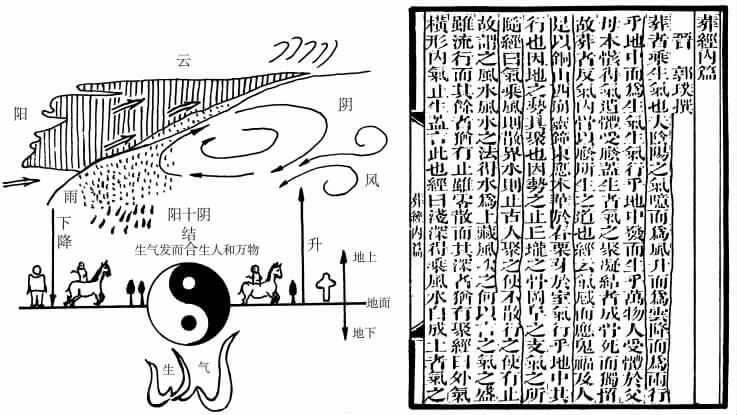 云
阳
阴
风
雨
下降
阳十阴
结
生气发而合生人和万物
升
地上
地面
地下
生
气
葬經內篇
晉 郭璞撰
葬者乘生氣也夫陰陽之氣噫而爲風升而爲雲降而爲雨行
乎地中而爲生氣生氣行乎地中發而生乎萬物人受體於父
母本骸得氣遺體受廕蓋生者氣之聚凝結者成骨死而獨留
故葬者反氣內骨以廕所生之道也經云氣感而應鬼福及人
是以銅山西崩靈鐘東應木華於春栗芽於室氣行乎地中其
行也因地之勢其聚也因勢之止丘壠之骨岡阜之支氣之所
隨經曰氣乘風則散界水則止古人聚之使不散行之使有止
故謂之風水風水之法得水爲上藏風次之何以言之氣之盛
雖流行而其餘者猶有止雖零散而其深者猶有聚經曰外氣
橫形內氣止生蓋言此也經曰淺深得乘風水自成土者氣之
葬經內篇